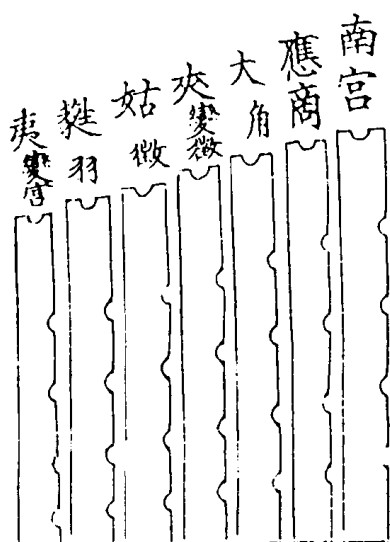 南宫
應商
大角
夾變徵
姑徵
蕤羽
夷變宮